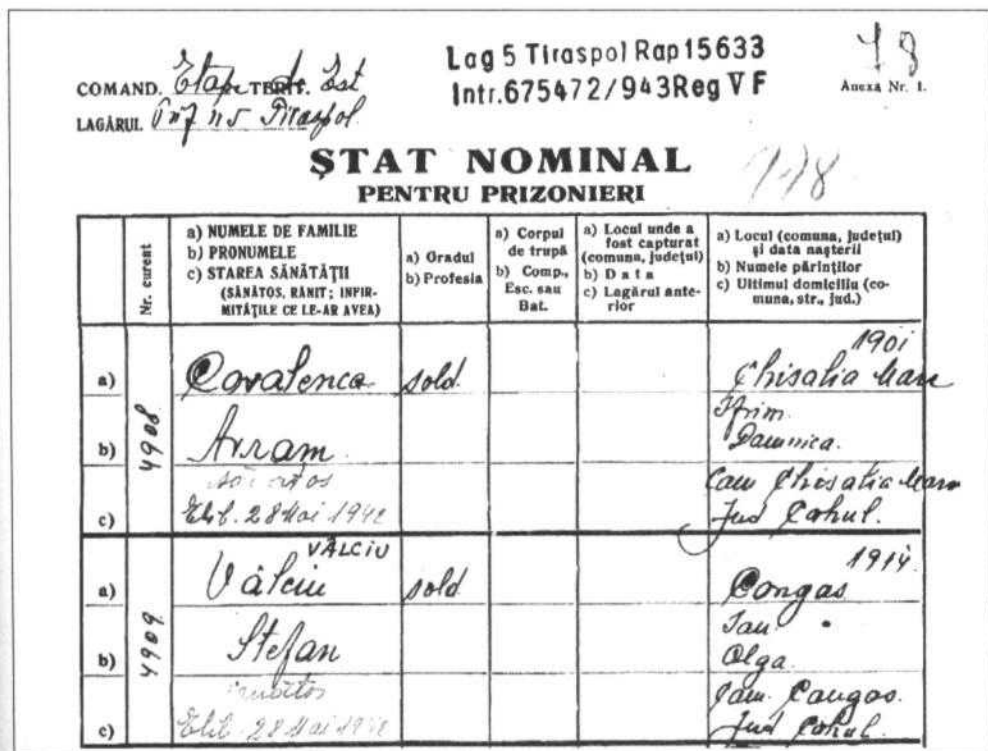 Lag 5 Tiraspol Rap 15633
Intr.675472/943Reg V F
78
Anexa Nr. 1.
COMAND. Etape TERIT. Est
LAGĂRUL nr 5 Tiraspol
ȘTAT NOMINAL
PENTRU PRIZONIERI
178
Nr. curent
a) NUMELE DE FAMILIE
b) PRONUMELE
c) STAREA SĂNĂTĂȚII
(SĂNĂTOS, RĂNIT; INFIR-
MITĂȚILE CE LE-AR AVEA)
a) Gradul
b) Profesia
a) Corpul
de trupă
b) Comp.,
Esc. sau
Bat.
a) Locul unde a
fost capturat
(comuna, județul)
b) Data
c) Lagărul ante-
rior
a) Locul (comuna, județul)
și data nașterii
b) Numele părinților
c) Ultimul domiciliu (co-
muna, str., jud.)
4908
a) Covalenco sold. 1901
Chisalia Mare
b) Avram Ifrim
Damnica.
c) Elib. 28 Mai 1942
Com Chisalia Mare
Jud Cahul.
4909
VÂLCIU
a) Vâlciu sold 1914.
Congas
b) Stefan Ian
Olga
c) Elib. 28 Mai 1942
Com. Congas.
Jud Cahul.